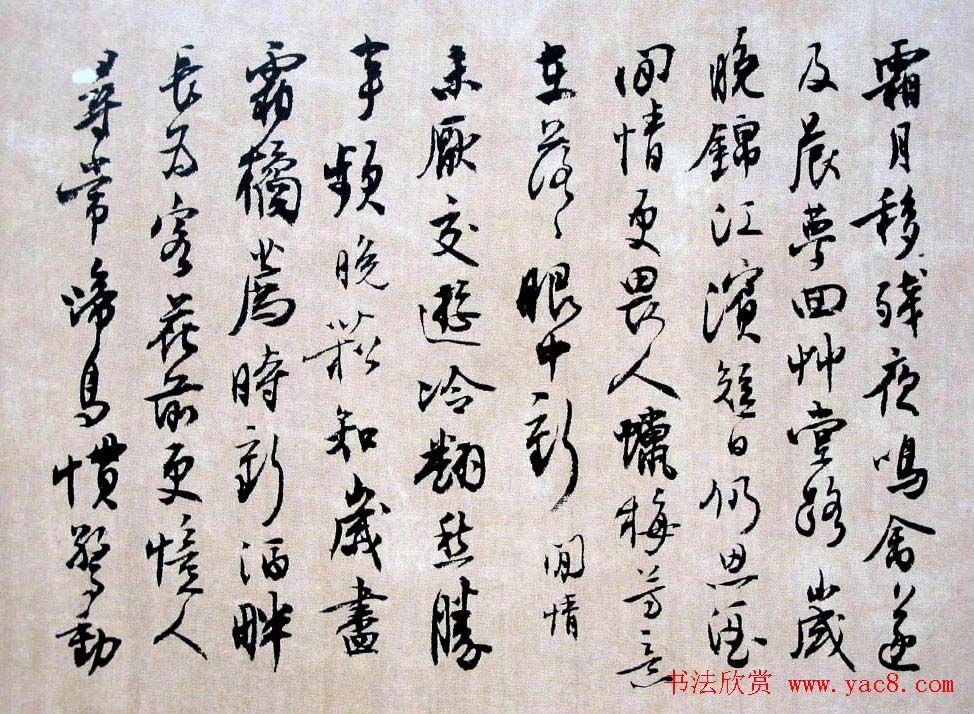 霜月移殘夜鳴禽
及晨夢回艸堂路歲
晚錦江濱短日仍思酒
閒情更畏人蠟梅芳意
在落〻眼中新 閒情
未厭交遊冷翻愁勝
事頻晚菘知歲盡
霜橘薦時新酒畔
長為客花前更憶人
尋常啼鳥慣驚動
书法欣赏 www.yac8.com